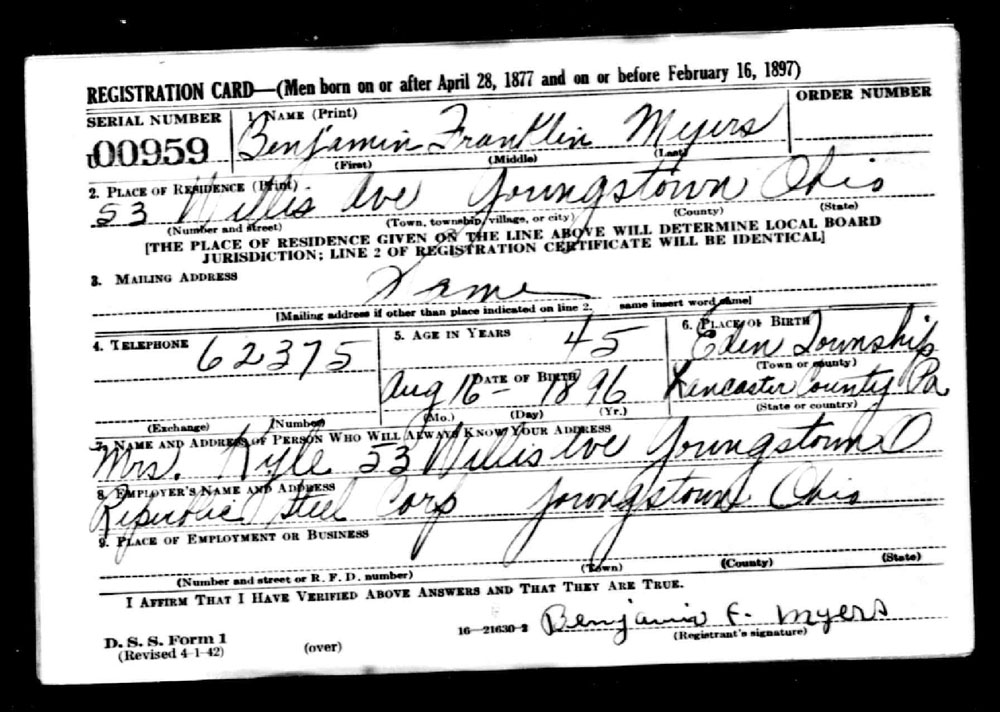 REGISTRATION CARD—(Men born on or after April 28, 1877 and on or before February 16, 1897)
SERIAL NUMBER 1. NAME (Print) ORDER NUMBER
U00959 Benjamin Franklin Myers
(First) (Middle) (Last)
2. PLACE OF RESIDENCE (Print)
53 Willis Ave Youngstown Ohio
(Number and street) (Town, township, village, or city) (County) (State)
[THE PLACE OF RESIDENCE GIVEN ON THE LINE ABOVE WILL DETERMINE LOCAL BOARD
JURISDICTION; LINE 2 OF REGISTRATION CERTIFICATE WILL BE IDENTICAL]
3. MAILING ADDRESS
Same
[Mailing address if other than place indicated on line 2. same insert word same]
4. TELEPHONE 5. AGE IN YEARS 6. PLACE OF BIRTH
62375 45 Eden Township
(Town or county)
DATE OF BIRTH
Aug 16 - 1896 Lancaster County Pa
(Exchange) (Number) (Mo.) (Day) (Yr.) (State or country)
7. NAME AND ADDRESS OF PERSON WHO WILL ALWAYS KNOW YOUR ADDRESS
Mrs. Kyle 53 Willis Ave Youngstown O
8. EMPLOYER'S NAME AND ADDRESS
Republic Steel Corp Youngstown Ohio
9. PLACE OF EMPLOYMENT OR BUSINESS
(Number and street or R. F. D. number) (Town) (County) (State)
I AFFIRM THAT I HAVE VERIFIED ABOVE ANSWERS AND THAT THEY ARE TRUE.
Benjamin F. Myers
D. S. S. Form 1 16—21630-2 (Registrant's signature)
(Revised 4-1-42) (over)